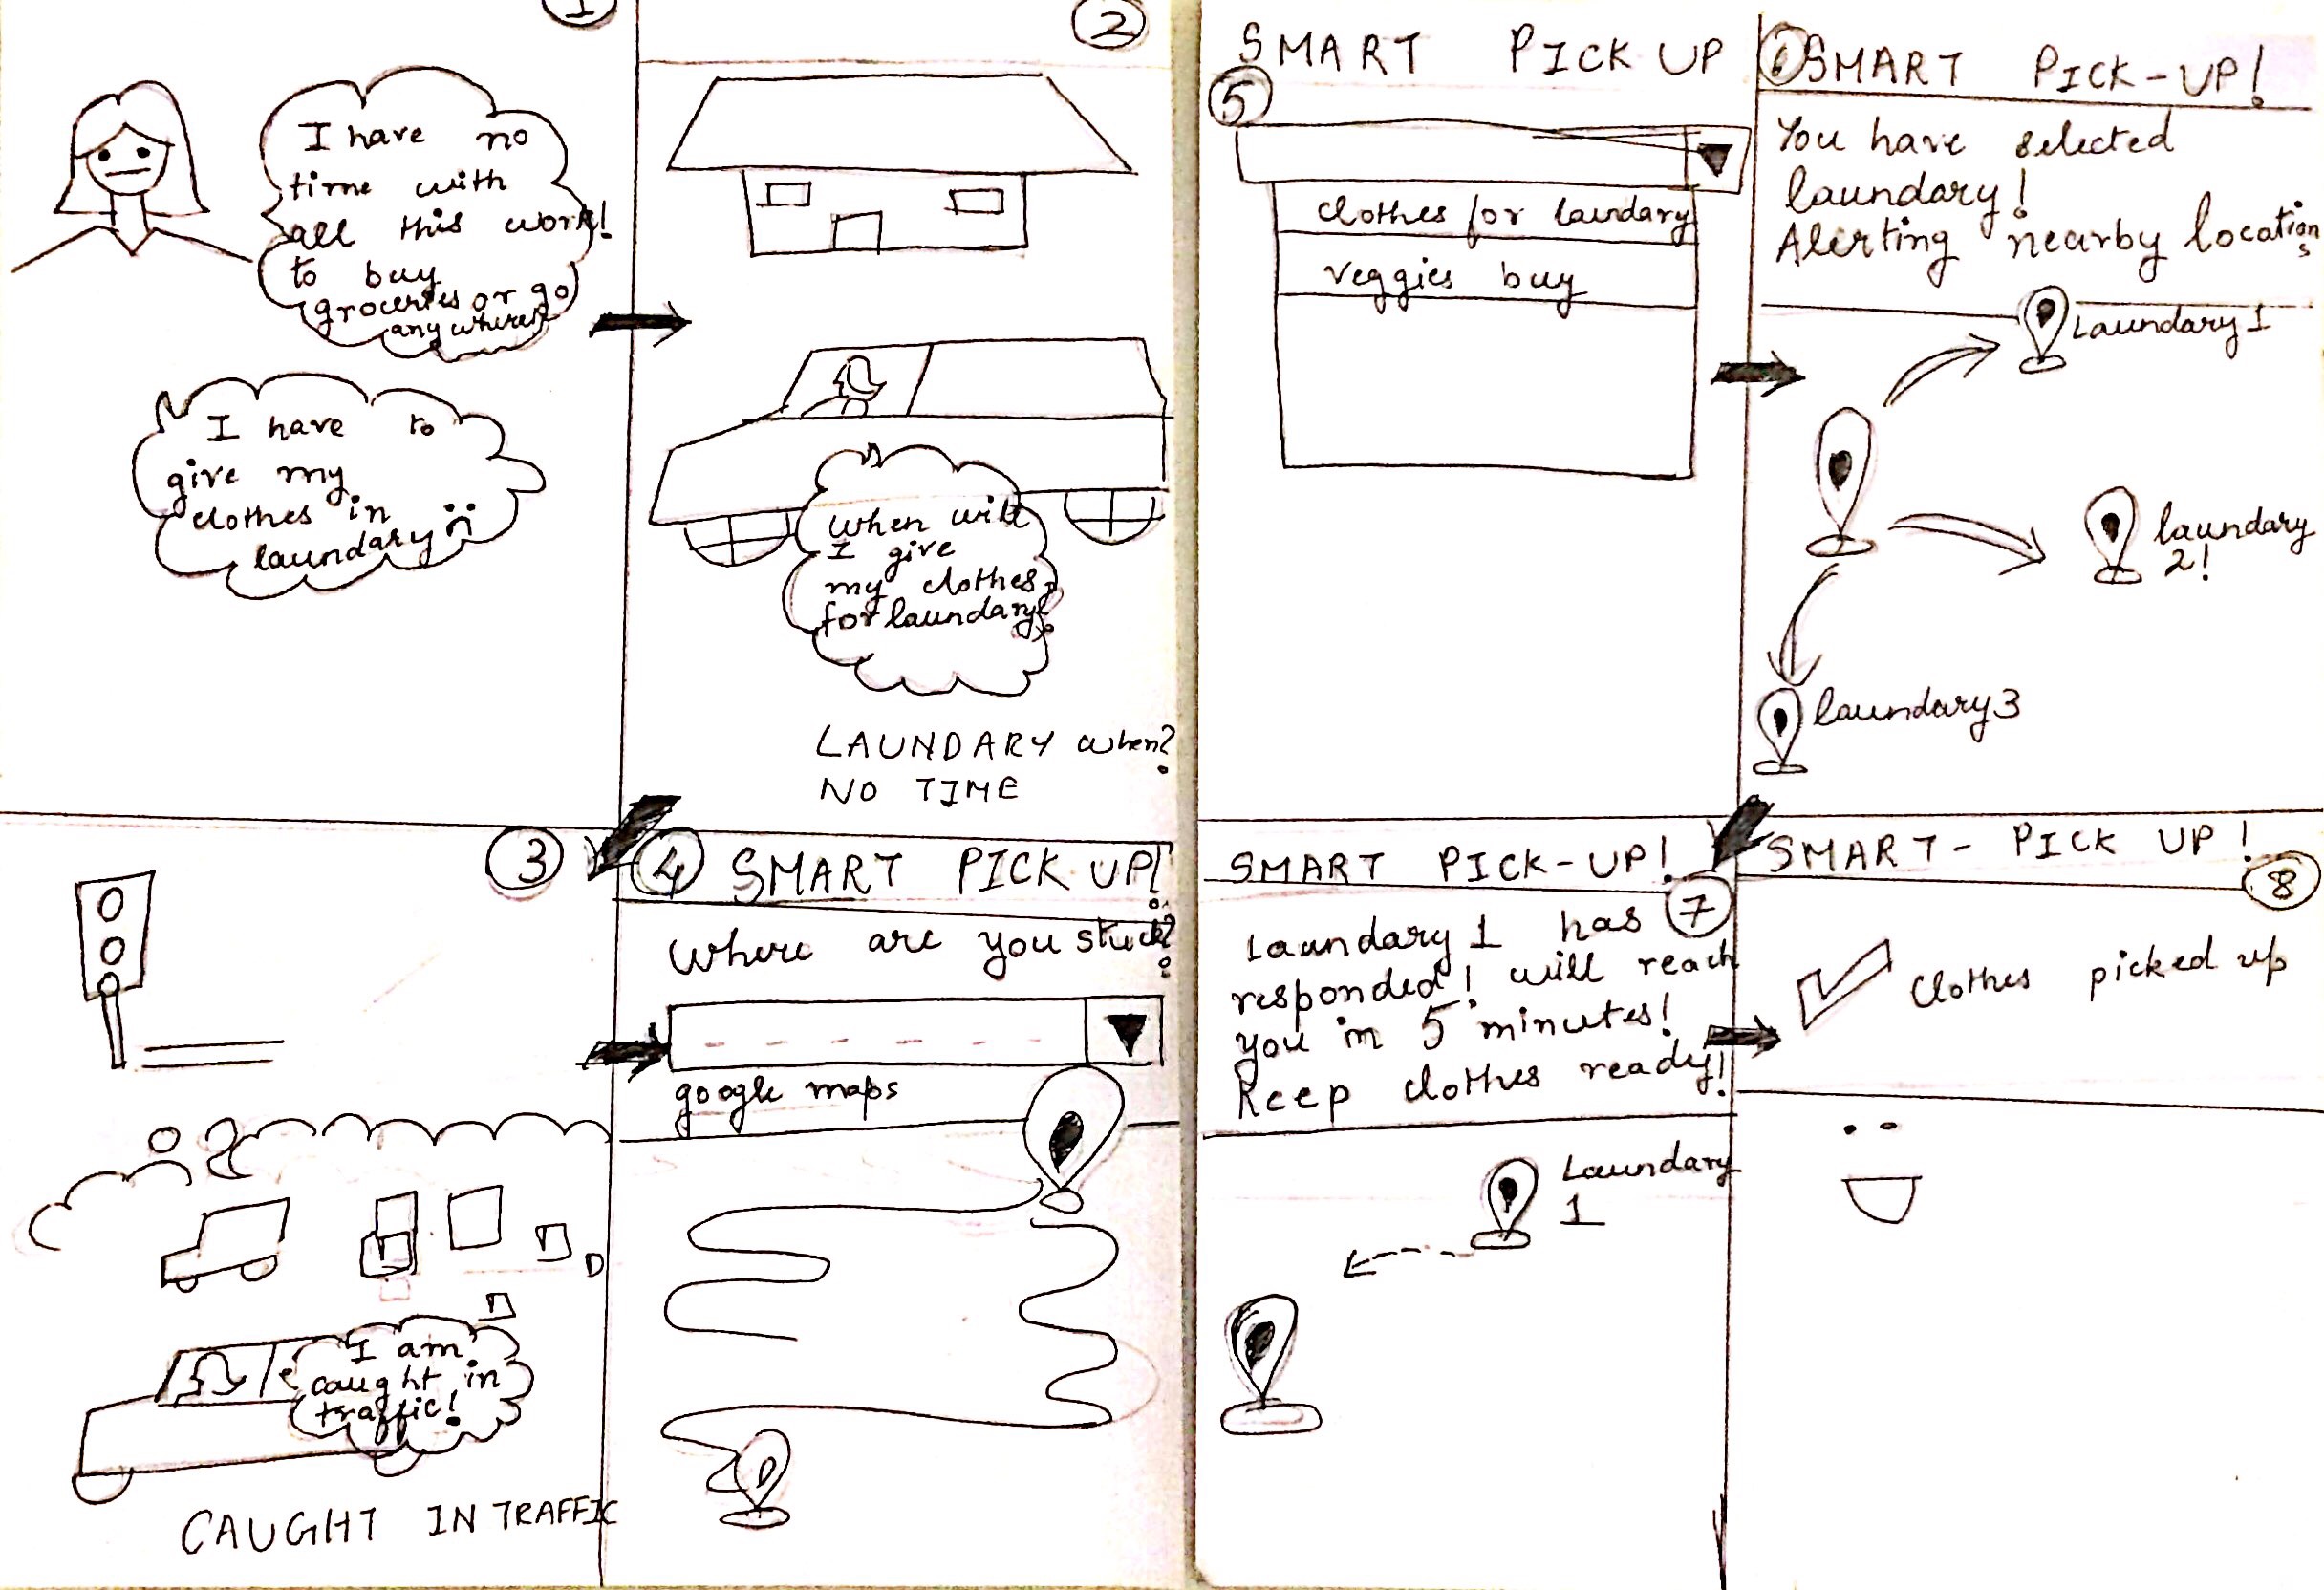 1
I have no
time with
all this work!
to buy
groceries or go
anywhere
I have to
give my
clothes in
laundary
2
When will
I give
my clothes
for laundary?
LAUNDARY when?
NO TIME
3
I am
caught in
traffic!
CAUGHT IN TRAFFIC
4 SMART PICK UP!
Where are you stuck?
google maps
SMART PICK UP
5
clothes for laundary
veggies buy
6 SMART PICK-UP!
You have selected
laundary!
Alerting nearby locations
Laundary 1
laundary
2!
laundary 3
SMART PICK-UP!
7
Laundary 1 has
responded! will reach
you in 5 minutes!
Keep clothes ready!
Laundary
1
SMART - PICK UP!
8
Clothes picked up